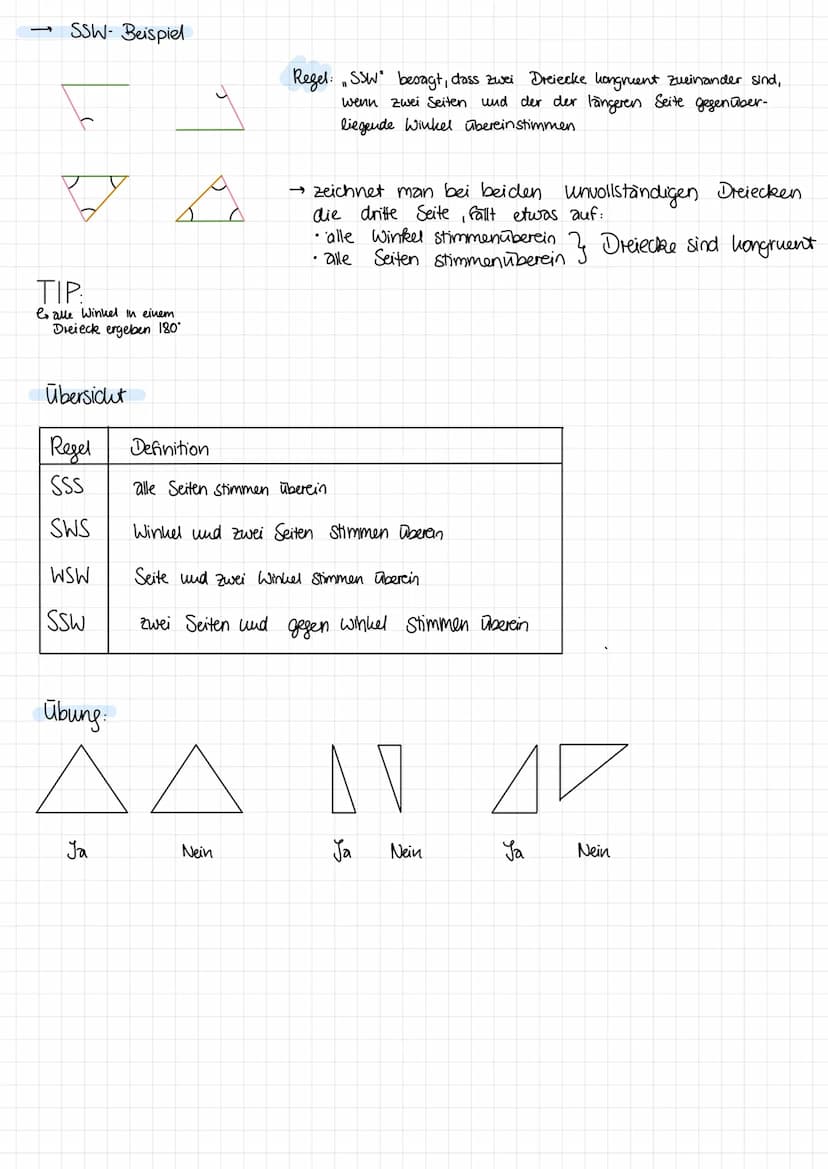 → SSW- Beispiel
Regel: „SSW" besagt, dass zwei Dreiecke kongruent zueinander sind,
wenn zwei Seiten und der der längeren Seite gegenüber-
liegende Winkel übereinstimmen
→ zeichnet man bei beiden unvollständigen Dreiecken
die dritte Seite, fällt etwas auf:
• alle Winkel stimmen überein
• alle Seiten stimmen überein } Dreiecke sind kongruent
TIP:
↳ alle Winkel in einem
Dreieck ergeben 180°
Übersicht
Regel Definition
SSS alle Seiten stimmen überein
SWS Winkel und zwei Seiten stimmen überein
WSW Seite und zwei Winkel stimmen überein
SSW zwei Seiten und gegen winkel stimmen überein
Übung:
Ja Nein Ja Nein Ja Nein